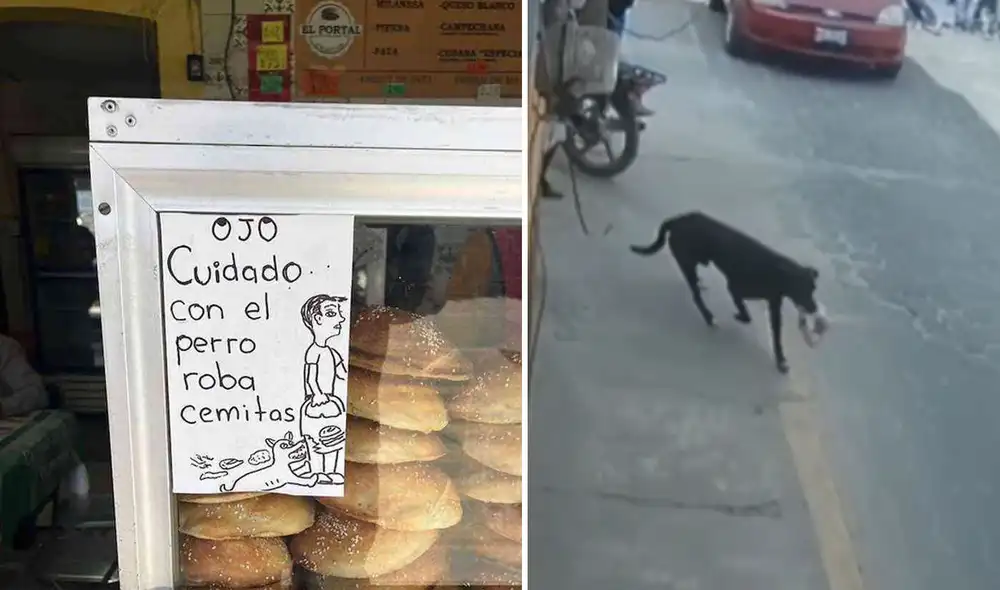 EL PORTAL
-MILANESA
-PIERNA
-PATA
-QUESO BLANCO
-CAMPECHANA
-CUBANA "ESPECIAL
OJO
Cuidado..
con el
perro
roba
cemitas